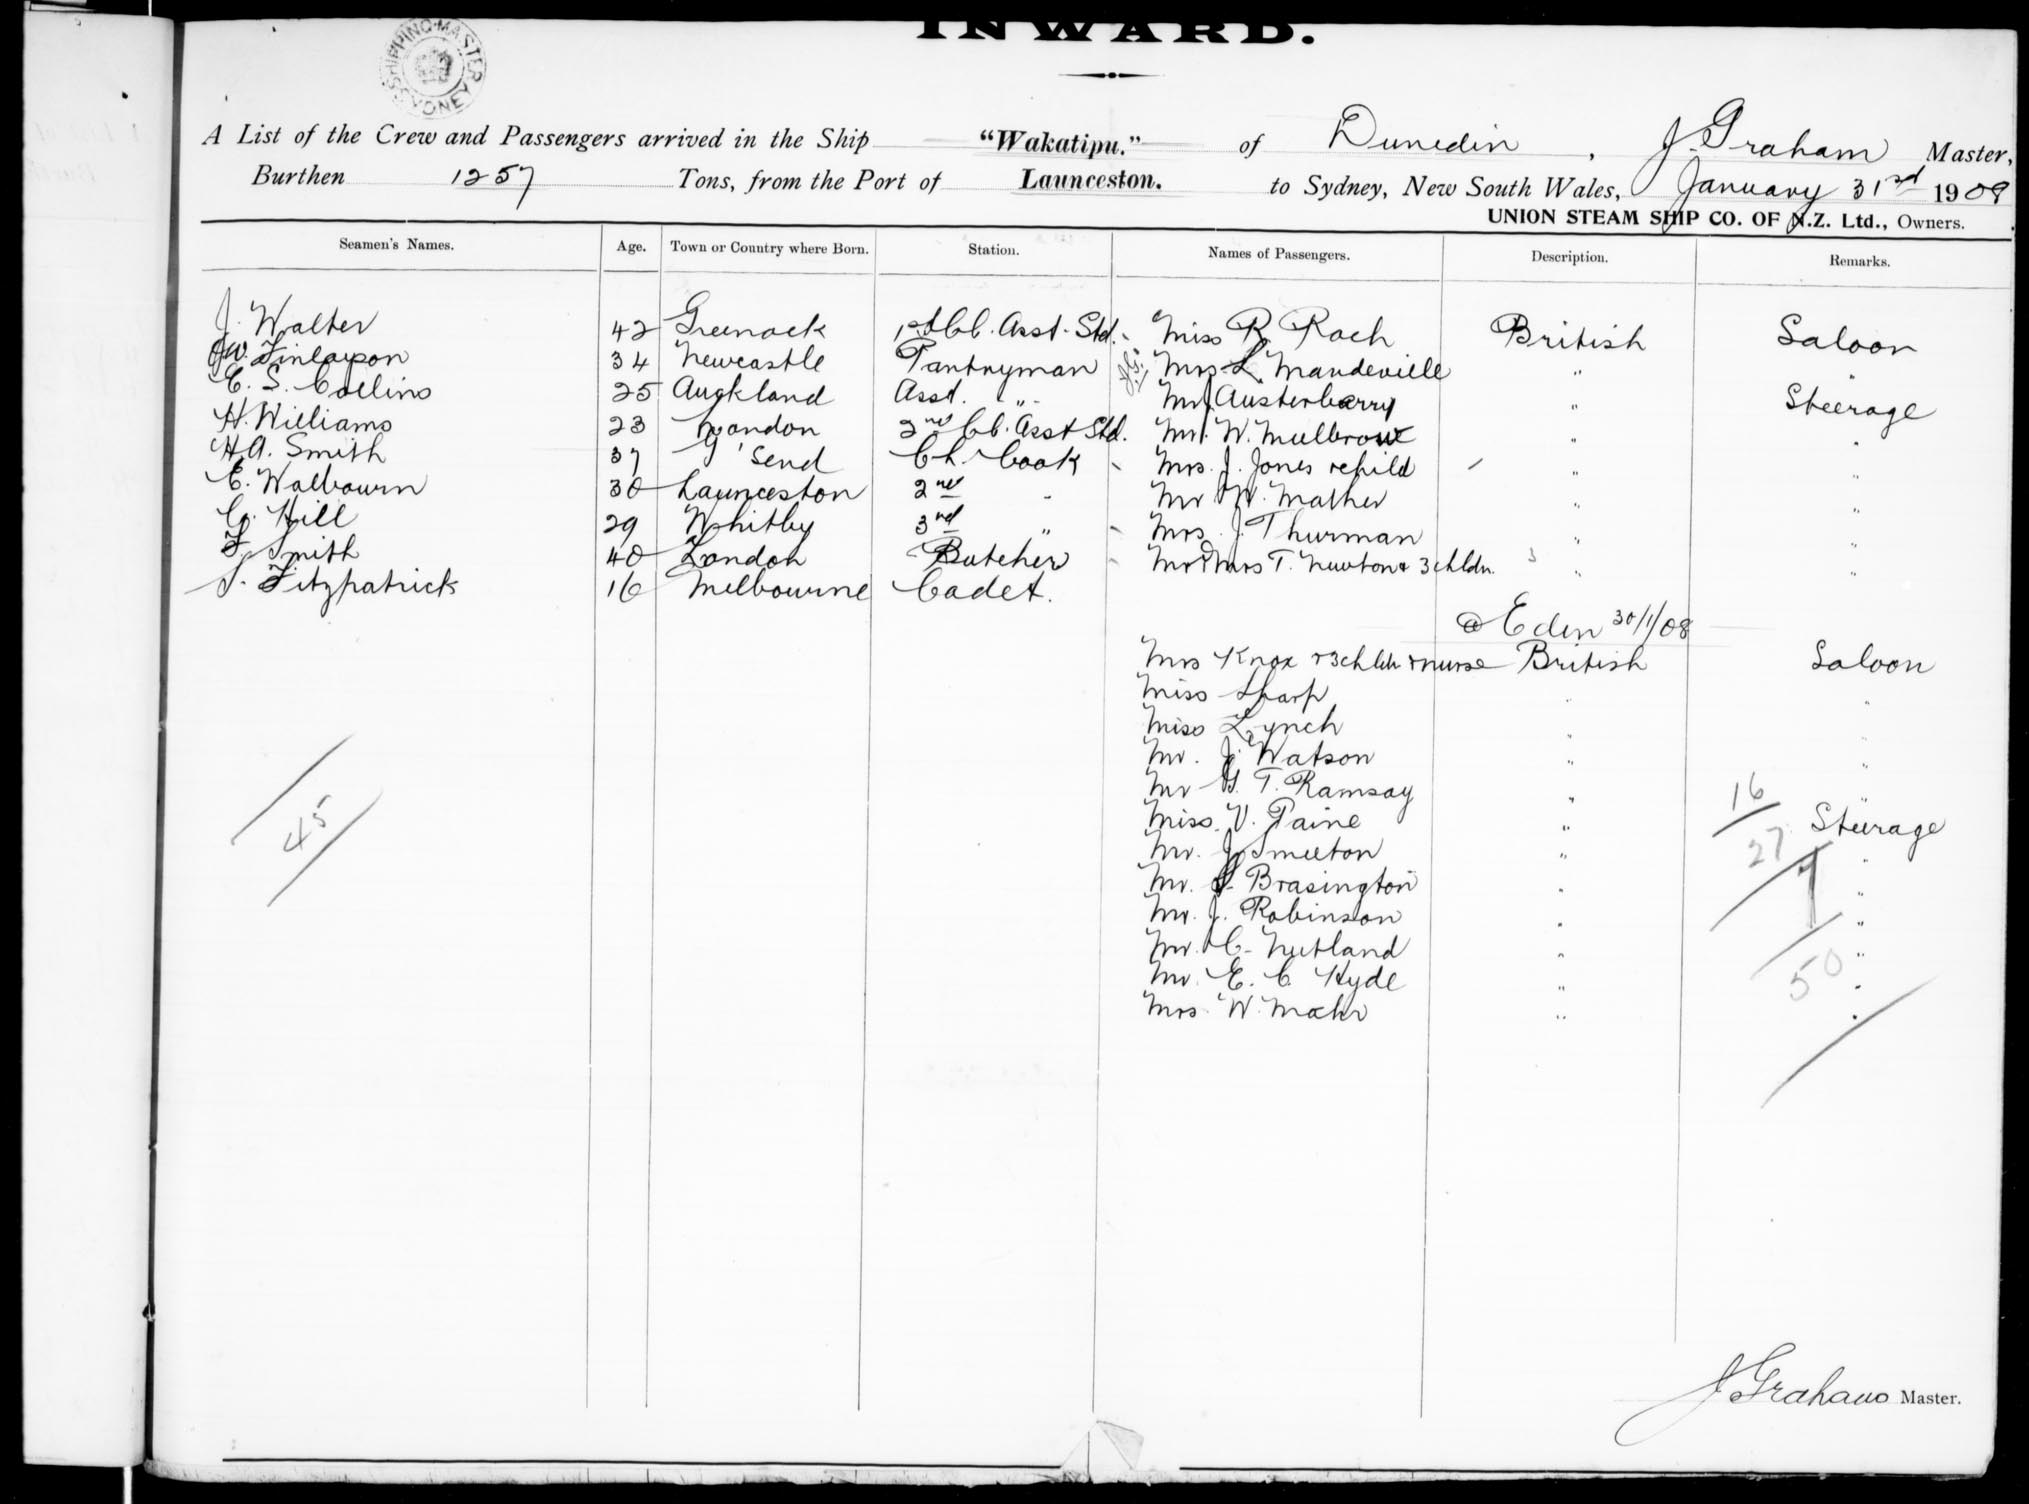 INWARD.
SHIPPING MASTER SYDNEY
A List of the Crew and Passengers arrived in the Ship "Wakatipu." of Dunedin, J. Graham Master,
Burthen 1257 Tons, from the Port of Launceston. to Sydney, New South Wales, January 31rd 1908
UNION STEAM SHIP CO. OF N.Z. Ltd., Owners.
Seamen's Names. Age. Town or Country where Born. Station. Names of Passengers. Description. Remarks.
J. Walter 42 Greenock 1st Cl. Asst. Std. Miss R Roch British Saloon
W. Finlayson 34 Newcastle Pantryman J.G. Mrs L. Mandeville " "
E. S. Collins 25 Auckland Asst. " Mr J Austerberry " Steerage
H. Williams 23 London 2nd Cl. Asst Std. Mr. W. Mulbrow " "
H.A. Smith 37 G'Send Ch. Cook Mrs. J. Jones & child " "
E. Walbourn 30 Launceston 2nd " Mr W. Mather " "
G. Hill 29 Whitby 3rd " Mrs. J. Thurman " "
F. Smith 40 London Butcher Mr & Mrs T. Newton & 3 chldn. 3 " "
J. Fitzpatrick 16 Melbourne Cadet.
@ Eden 30/1/08
Mrs Knox & 3 chldn & nurse British Saloon
Miss Sharp " "
Miss Lynch " "
Mr. J. Watson " "
Mr G. T. Ramsay " "
Miss. V. Paine " Steerage
Mr. J. Smeeton " "
Mr. G. Brasington " "
Mr. J. Robinson " "
Mr. C. Nutland " "
Mr. E. C. Hyde " "
Mrs. W. Mahr " "
45
16
27
7
50
J Graham Master.